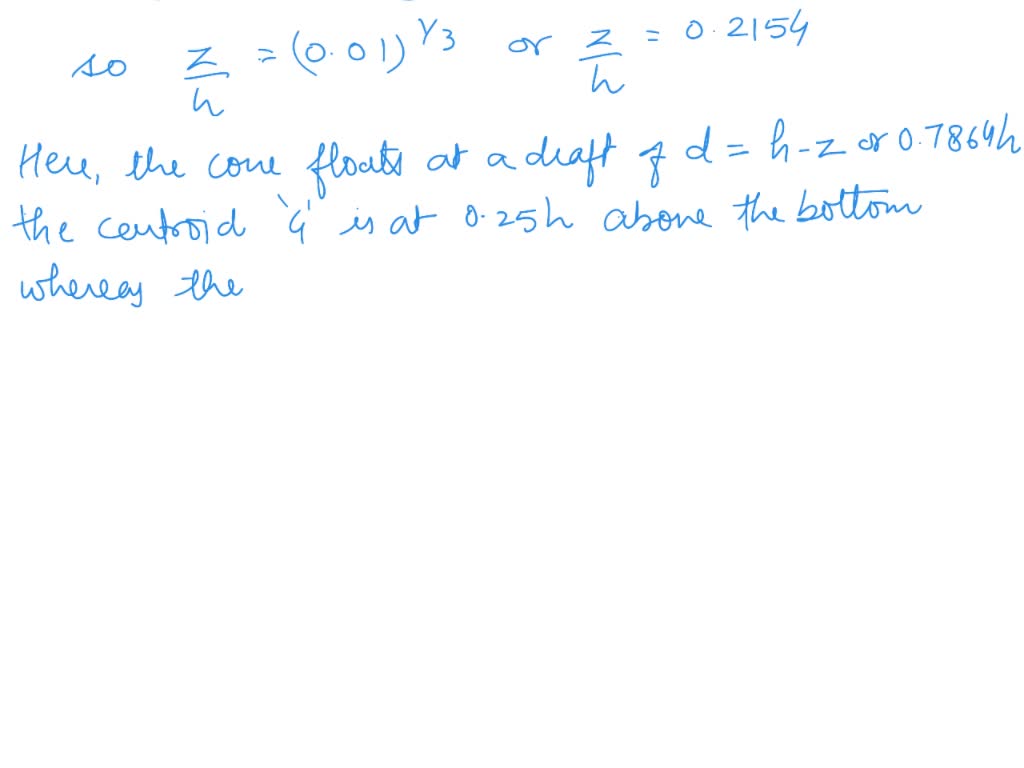 so z/h = (0.01)^1/3 or z/h = 0.2154
Here, the cone floats at a draft of d = h-z or 0.7864h
the centroid 'G' is at 0.25h above the bottom
whereas the